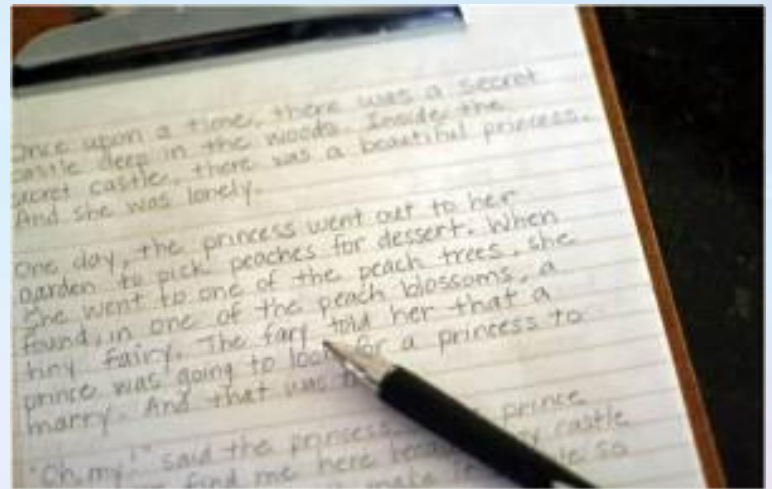 Once upon a time, there was a secret
castle deep in the woods. Inside the
secret castle, there was a beautiful princess.
And she was lonely.
One day, the princess went out to her
garden to pick peaches for dessert. When
she went to one of the peach trees, she
found, in one of the peach blossoms, a
tiny fairy. The fary told her that a
prince was going to look for a princess to
marry. And that was
"Oh, my!" said the princess. prince
find me here castle
make so